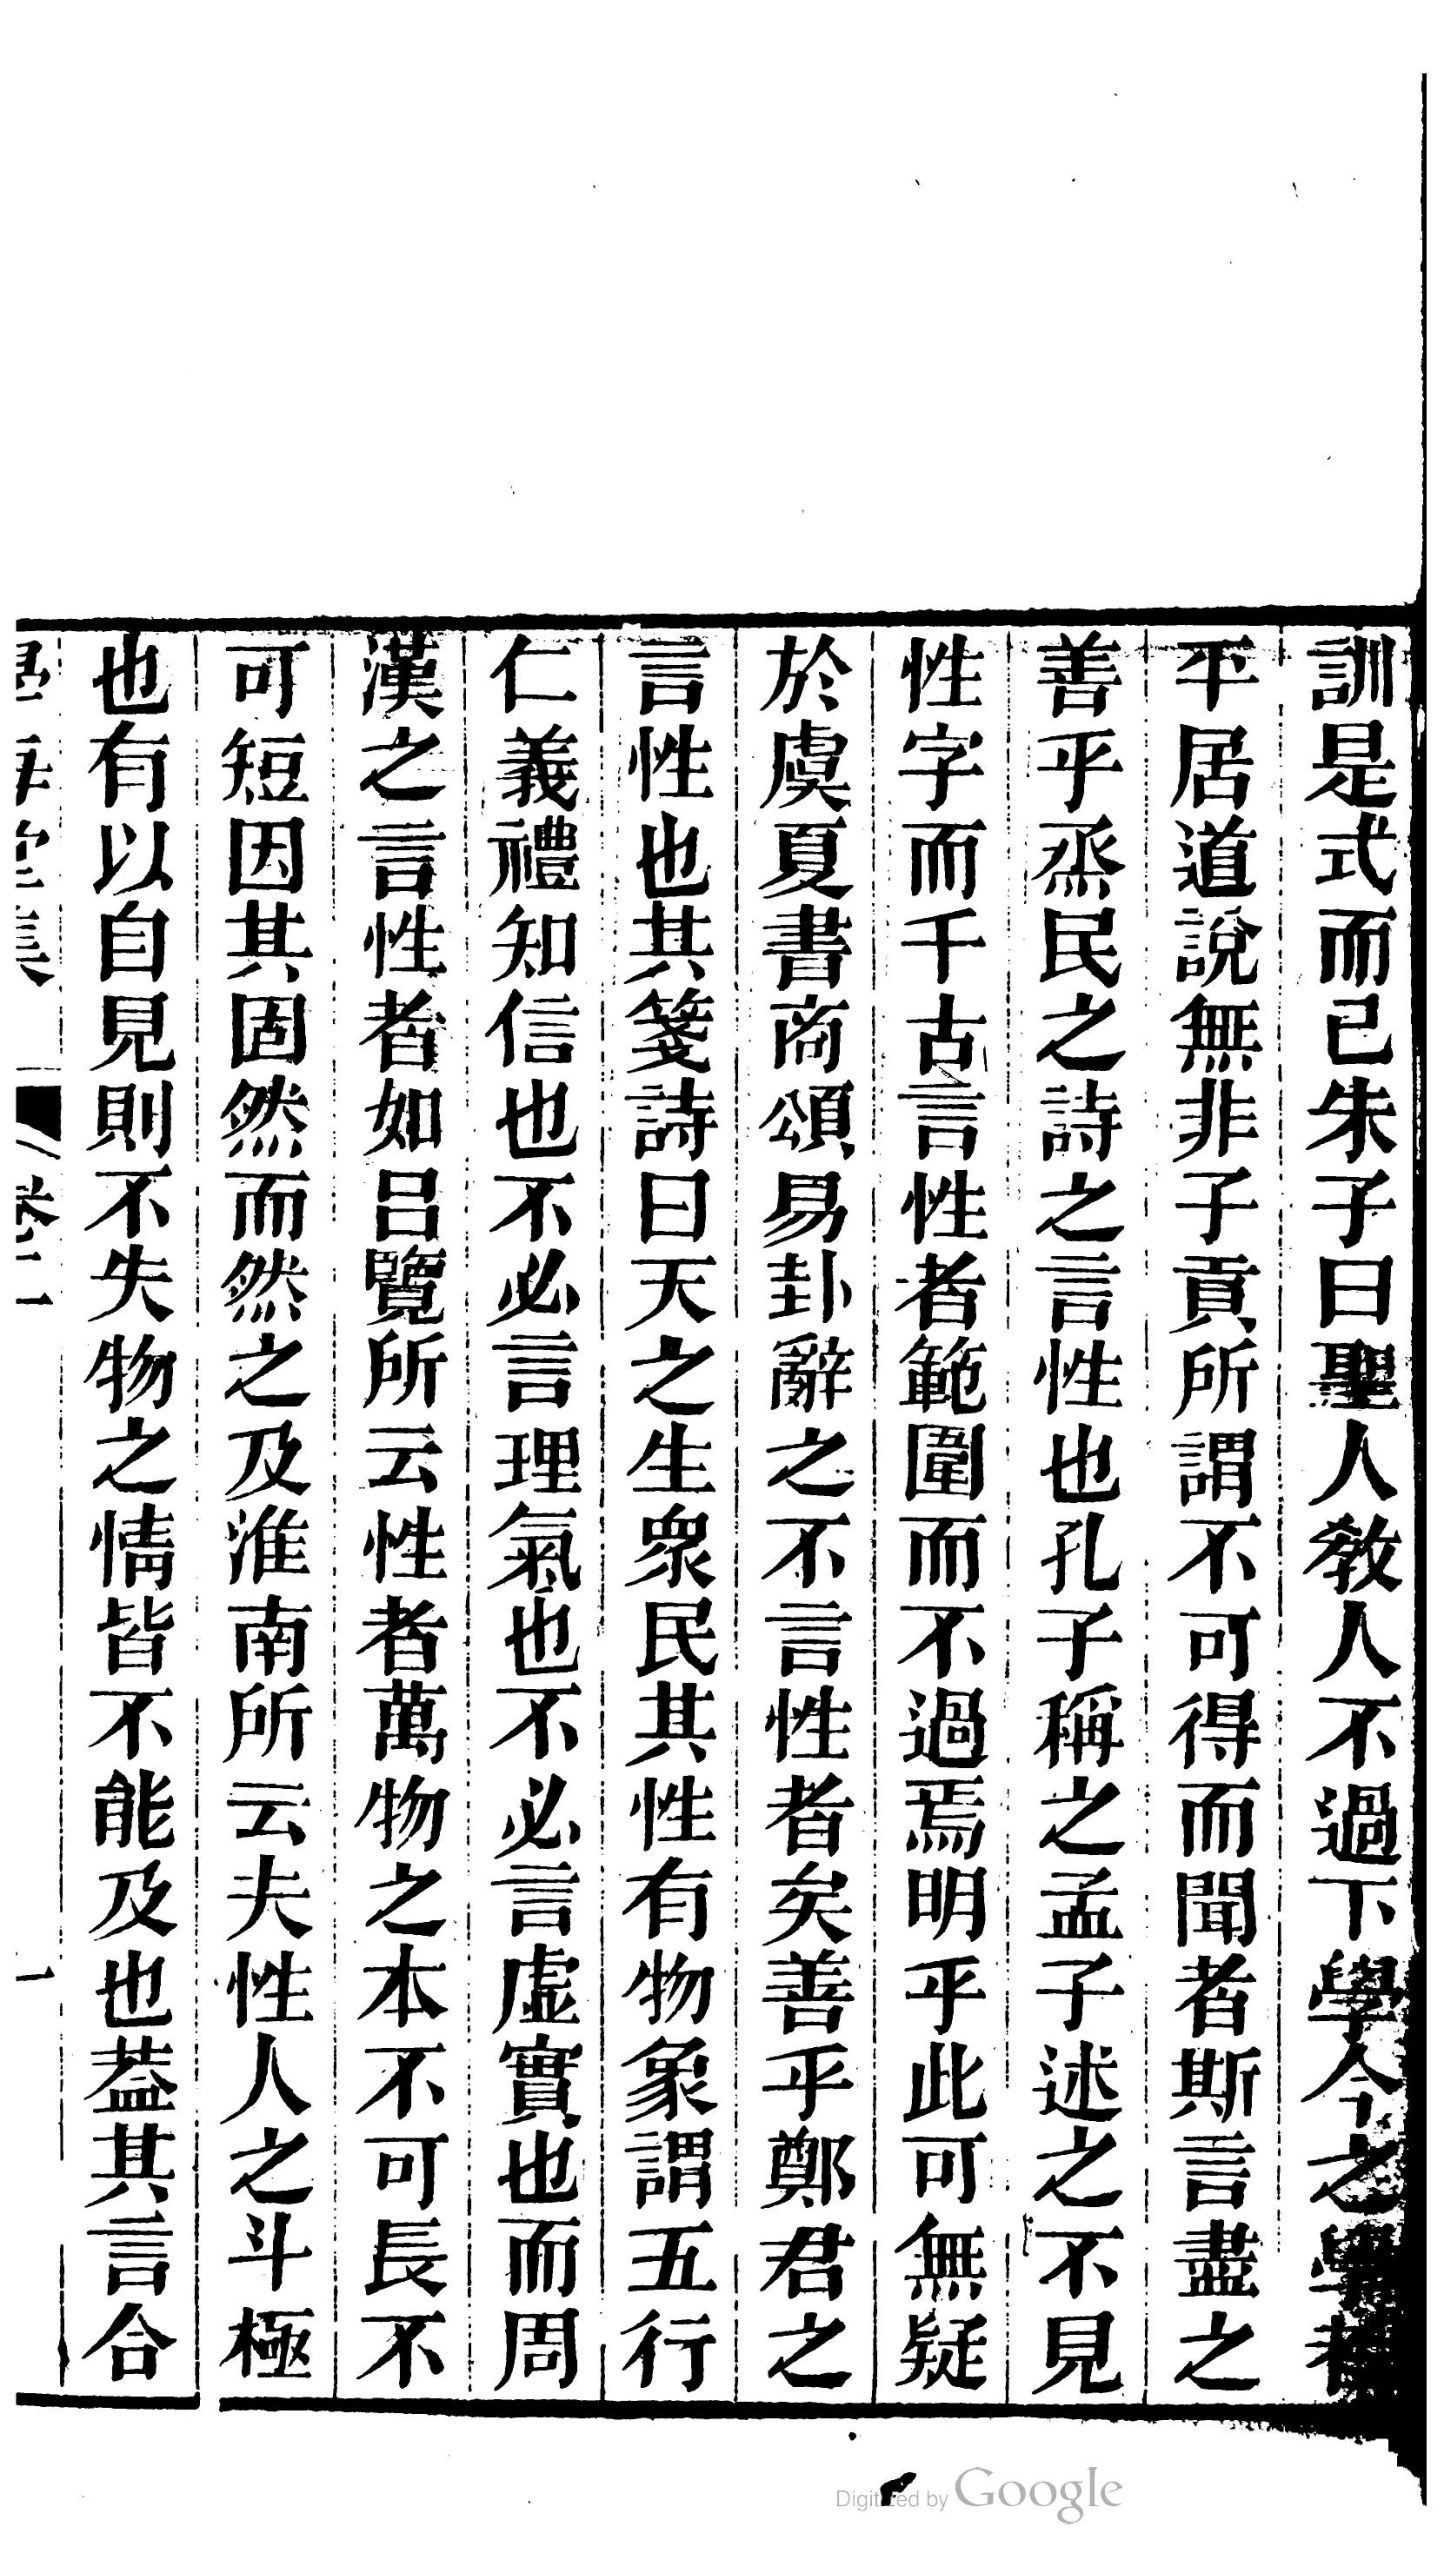 訓是式而已朱子曰聖人教人不過下學今之學者
平居道說無非子貢所謂不可得而聞者斯言盡之
善乎烝民之詩之言性也孔子稱之孟子述之不見
性字而千古言性者範圍而不過焉明乎此可無疑
於虞夏書商頌易卦辭之不言性者矣善乎鄭君之
言性也其箋詩曰天之生衆民其性有物象謂五行
仁義禮知信也不必言理氣也不必言虛實也而周
漢之言性者如呂覽所云性者萬物之本不可長不
可短因其固然而然之及淮南所云夫性人之斗極
也有以自見則不失物之情皆不能及也葢其言合
學海堂集 卷二 一
Digitized by Google